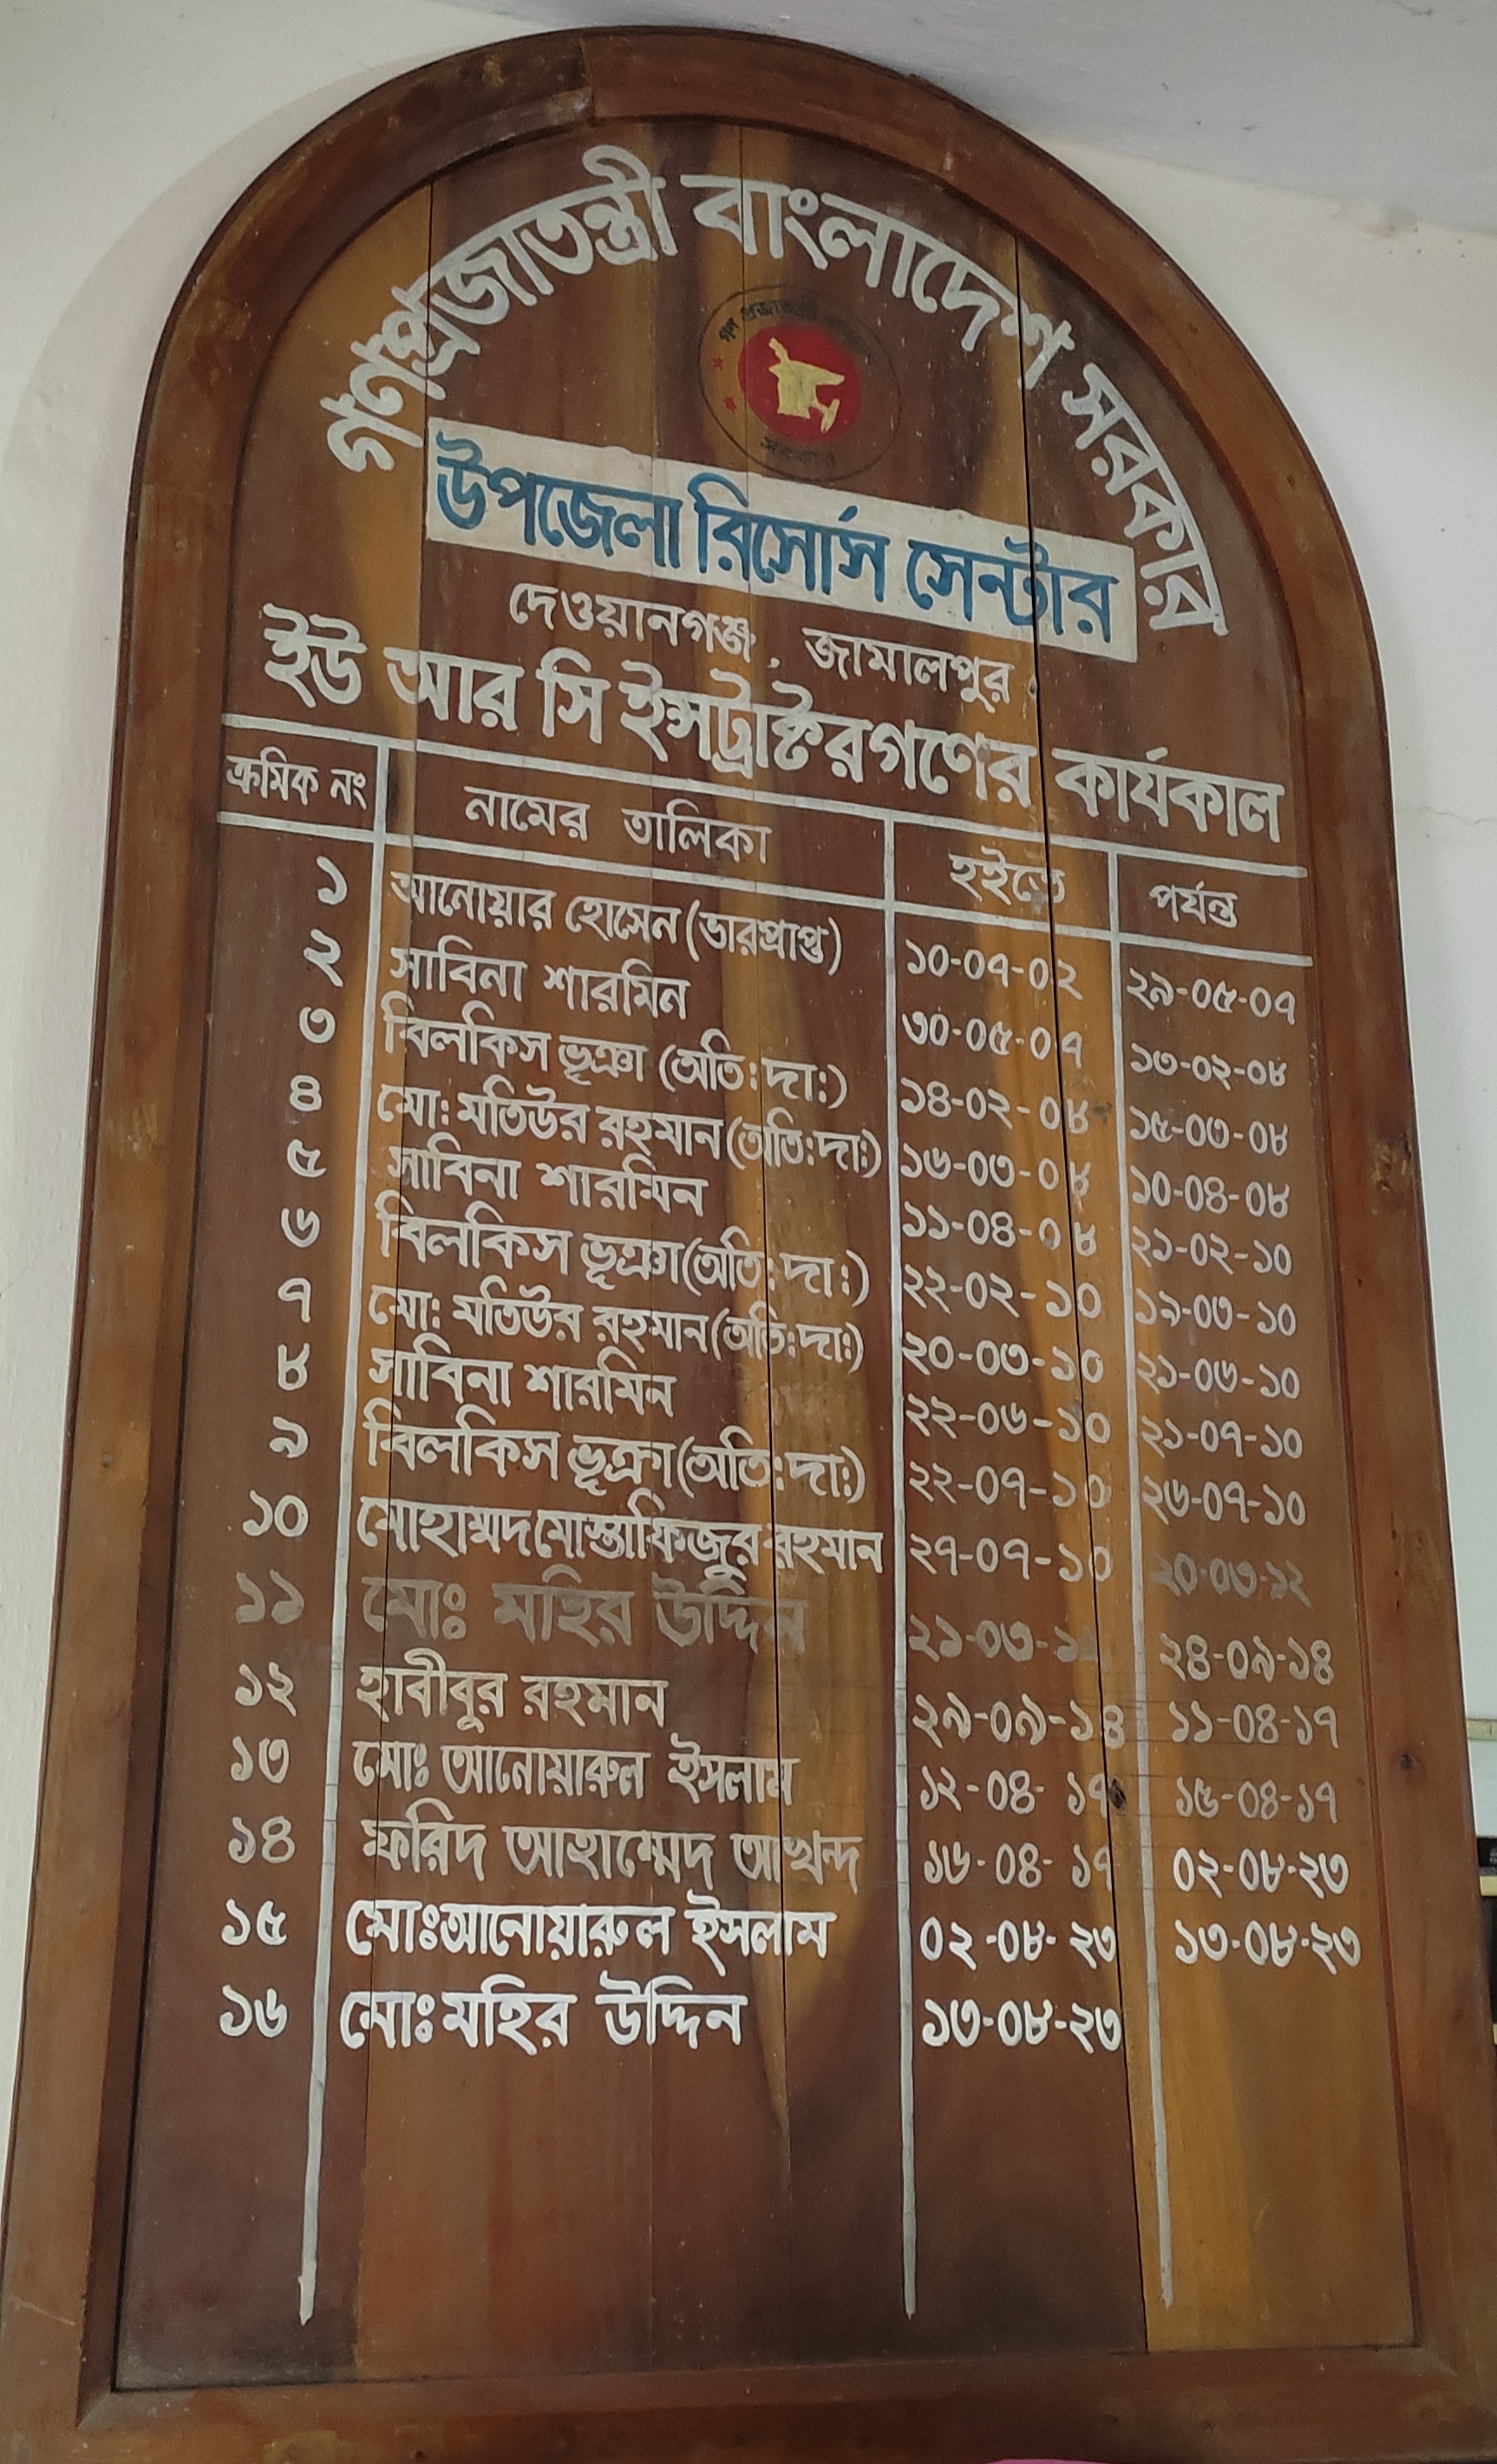 গণপ্রজাতন্ত্রী বাংলাদেশ সরকার
সরকার
উপজেলা রিসোর্স সেন্টার
দেওয়ানগঞ্জ, জামালপুর।
ইউ আর সি ইন্সট্রাক্টরগণের কার্যকাল
ক্রমিক নং নামের তালিকা হইতে পর্যন্ত
১ আনোয়ার হোসেন (ভারপ্রাপ্ত) ১০-০৭-০২ ২৯-০৫-০৭
২ সাবিনা শারমিন ৩০-০৫-০৭ ১৩-০২-০৮
৩ বিলকিস ভূঞা (অতি:দা:) ১৪-০২-০৮ ১৫-০৩-০৮
৪ মো: মতিউর রহমান (অতি:দা:) ১৬-০৩-০৮ ১০-০৪-০৮
৫ সাবিনা শারমিন ১১-০৪-০৮ ২১-০২-১০
৬ বিলকিস ভূঞা (অতি:দা:) ২২-০২-১০ ১৯-০৩-১০
৭ মো: মতিউর রহমান (অতি:দা:) ২০-০৩-১০ ২১-০৬-১০
৮ সাবিনা শারমিন ২২-০৬-১০ ২১-০৭-১০
৯ বিলকিস ভূঞা (অতি:দা:) ২২-০৭-১০ ২৬-০৭-১০
১০ মোহামদ মোস্তাফিজুর রহমান ২৭-০৭-১০ ২০-০৩-১২
১১ মোঃ মহির উদ্দিন ২১-০৩-১২ ২৪-০৯-১৪
১২ হাবীবুর রহমান ২৯-০৯-১৪ ১১-০৪-১৭
১৩ মোঃ আনোয়ারুল ইসলাম ১২-০৪-১৭ ১৫-০৪-১৭
১৪ ফরিদ আহাম্মেদ আখন্দ ১৬-০৪-১৭ ০২-০৮-২৩
১৫ মোঃ আনোয়ারুল ইসলাম ০২-০৮-২৩ ১৩-০৮-২৩
১৬ মোঃ মহির উদ্দিন ১৩-০৮-২৩